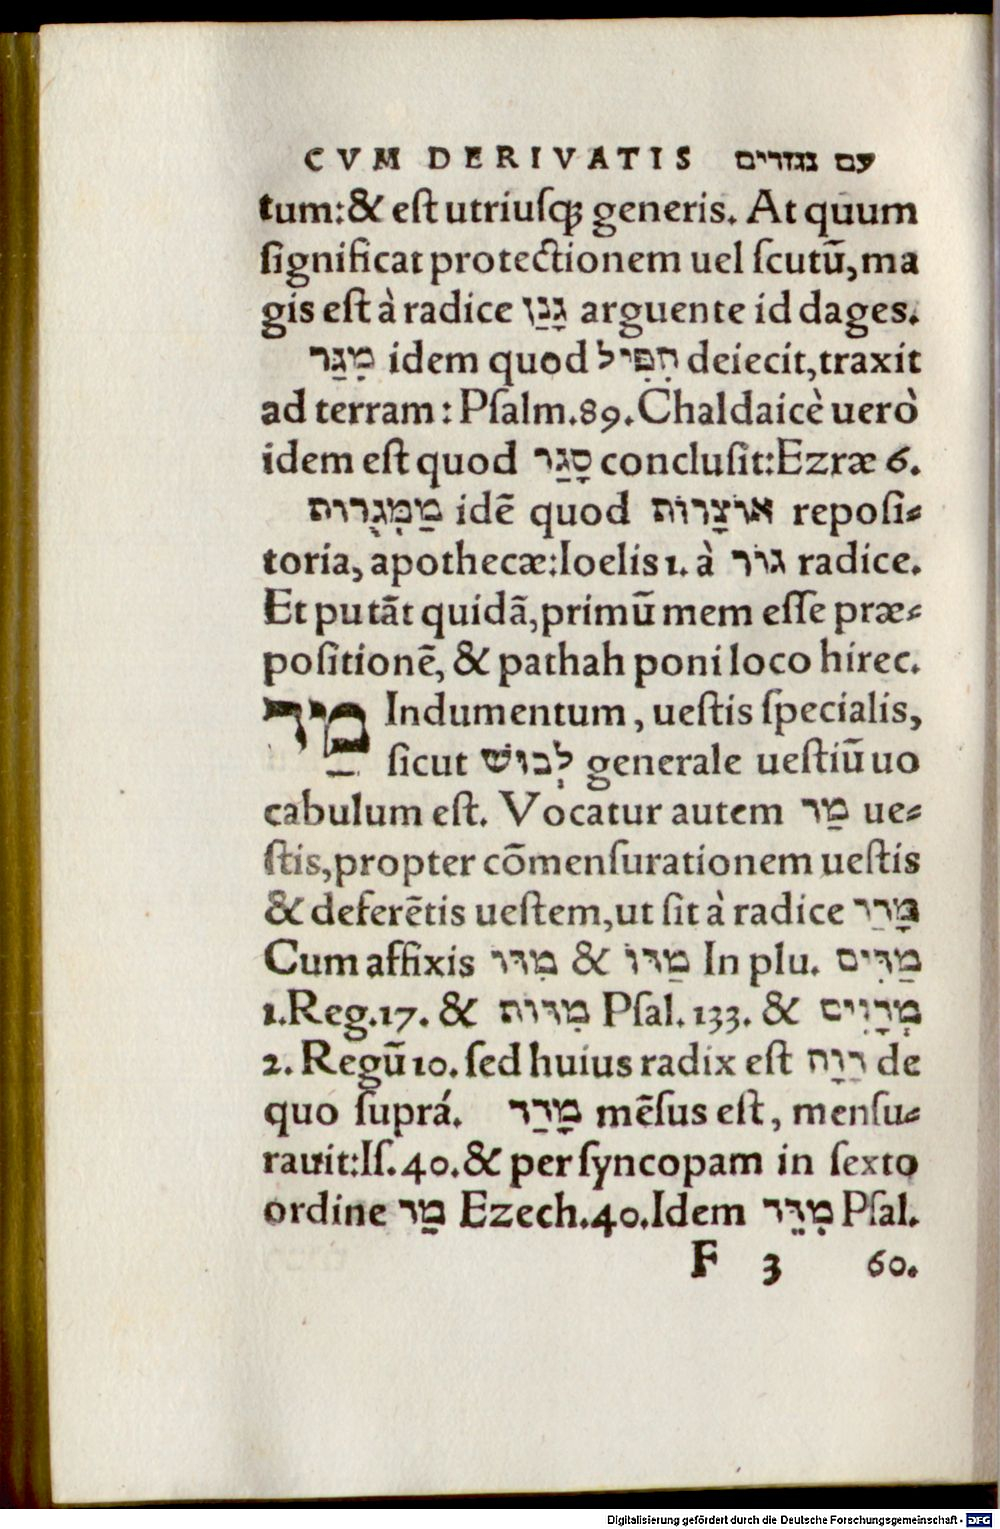 CVM DERIVATIS עם נגזרים
tum:& eſt utriuſq; generis. At quum
ſignificat protectionem uel ſcutū,ma
gis eſt à radice גָּנַן arguente id dages.
מִגַּר idem quod הִפִּיל deiecit,traxit
ad terram: Pſalm.89.Chaldaicè uerò
idem eſt quod סָגַר concluſit:Ezræ 6.
מַמְּגֻרוֹת idē quod אוֹצָרוֹת repoſi⸗
toria, apothecæ:Ioelis 1. à גּוֹר radice.
Et putāt quidā,primū mem eſſe præ⸗
poſitionē, & pathah poni loco hirec.
מַד Indumentum, ueſtis ſpecialis,
ſicut לְבוּשׁ generale ueſtiū uo
cabulum eſt. Vocatur autem מַד ue⸗
ſtis,propter cōmenſurationem ueſtis
& deferētis ueſtem,ut ſit à radice מָדַד
Cum affixis מִדּוֹ & מַדּוֹ In plu. מַדִּים
1.Reg.17. & מִדּוֹת Pſal.133. & מְדָוִים
2. Regū 10. ſed huius radix eſt דָוָה de
quo ſuprá. מָדַד mēſus eſt, menſu⸗
rauit:Iſ.40.& per ſyncopam in ſexto
ordine מַד Ezech.40.Idem מִדֵּד Pſal.
F 3 60.
Digitalisierung gefördert durch die Deutsche Forschungsgemeinschaft - DFG